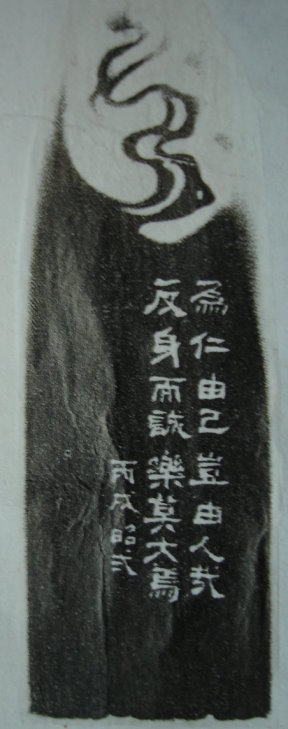 為仁由己豈由人哉
反身而誠樂莫大焉
丙戌昭弍